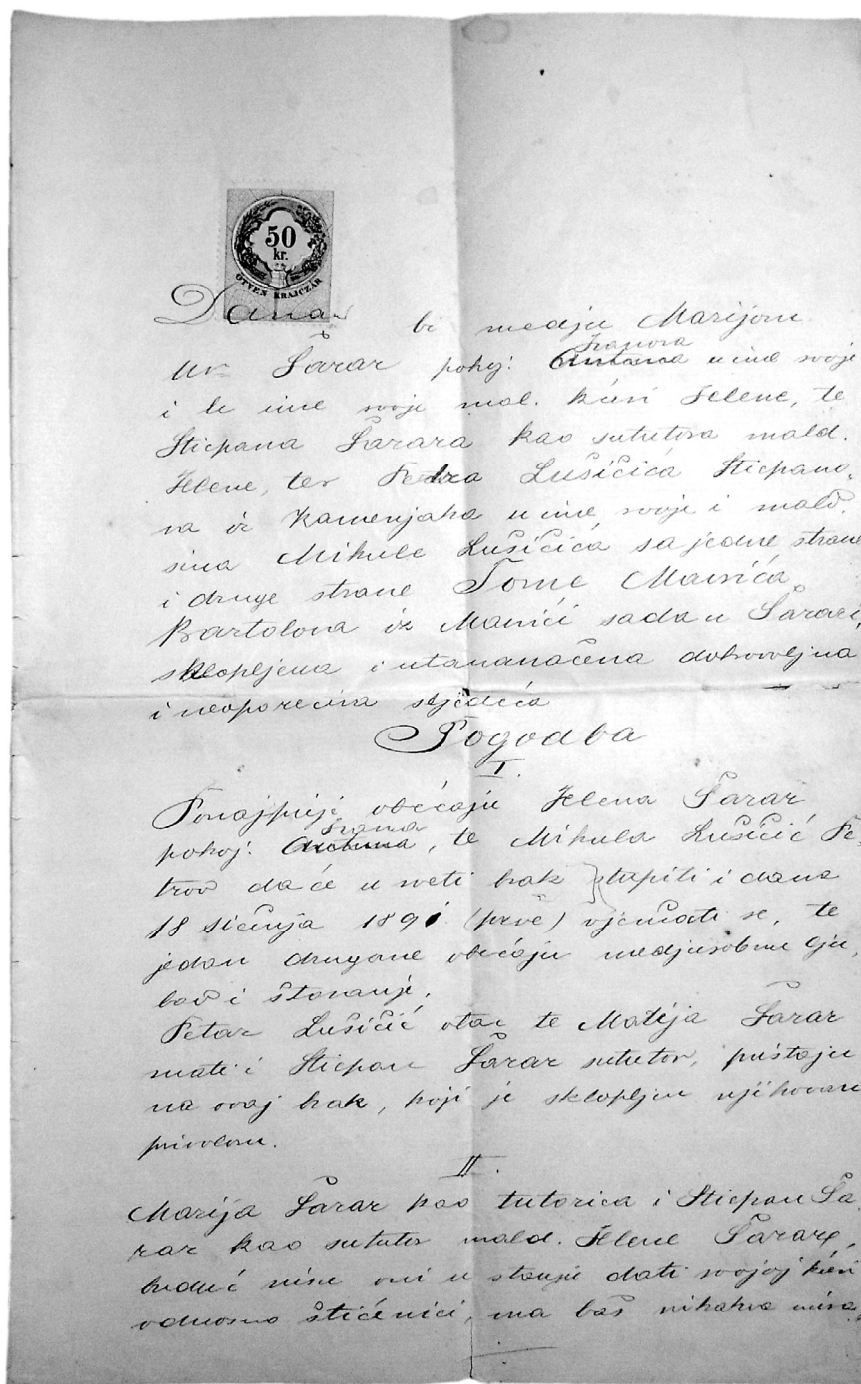 50
kr.
ÖTVEN KRAJCZÁR
Danas bi medju Marijom
ud. Šarar pokoj. Ivanova Antuna u ime svoje
i u ime svoje mal. kćeri Jelene, te
Stiepana Šarara kao sututora mald.
Jelene, ter Petra Lušičića Stiepano-
va iz Kamenjaka u ime svoje i mald.
sina Mikule Lušičića sa jedne strane
i druge strane Tome Mavrića
Bartolova iz Mavrići sada u Šarari,
sklopljena i utanačena dobrovoljna
i neoporeciva sljedeća
Pogodba
I.
Ponajprije obećaju Jelena Šarar
pokoj. Ivana Antuna, te Mikula Lušičić Pe-
trov da će u sveti brak stupiti i dana
18 siečnja 1891 (prve) vjenčati se, te
jedan drugome obećaju medjusobnu lju-
bav i štovanje.
Petar Lušičić otac te Matija Šarar
mati i Stiepan Šarar sututor, pristaju
na ovaj brak, koji je sklopljen njihovom
privolom.
II.
Marija Šarar kao tutorica i Stiepan Ša-
rar kao sututor mald. Jelene Šarar,
buduć nisu oni u stanju dati svojoj kćeri
odnosno štićenici, ma baš nikakva mira-